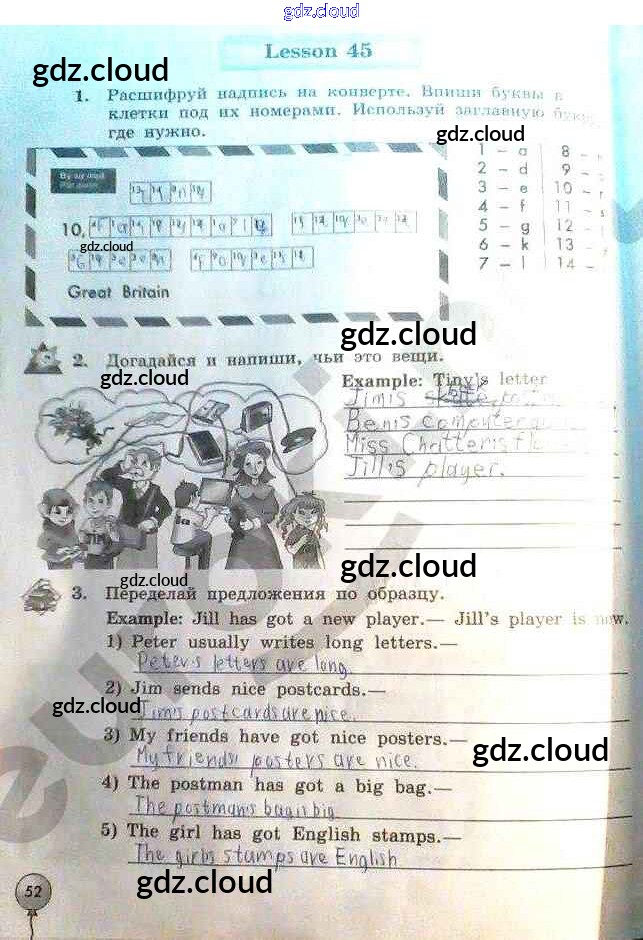 gdz.cloud
Lesson 45
gdz.cloud
1. Расшифруй надпись на конверте. Впиши буквы в
клетки под их номерами. Используй заглавную
где нужно.
gdz.cloud
1 – a 8 –
2 – d 9 –
3 – e 10 –
4 – f 11 –
5 – g 12 –
6 – k 13 –
7 – l 14 –
By air mail
Par avion
10,
gdz.cloud
Great Britain
gdz.cloud
2. Догадайся и напиши, чьи это вещи.
gdz.cloud
Example: Tiny's letter
Jim's
Ben's computer
Miss Chatter's
Jill's player.
JIM
gdz.cloud
gdz.cloud
3. Переделай предложения по образцу.
Example: Jill has got a new player.— Jill's player is
1) Peter usually writes long letters.—
Peter's letters are long
2) Jim sends nice postcards.—
gdz.cloud
Jim's postcards are nice.
3) My friends have got nice posters.—
gdz.cloud
My friends' posters are nice.
4) The postman has got a big bag.—
The postman's bag is big
5) The girl has got English stamps.—
The girl's stamps are English
52
gdz.cloud